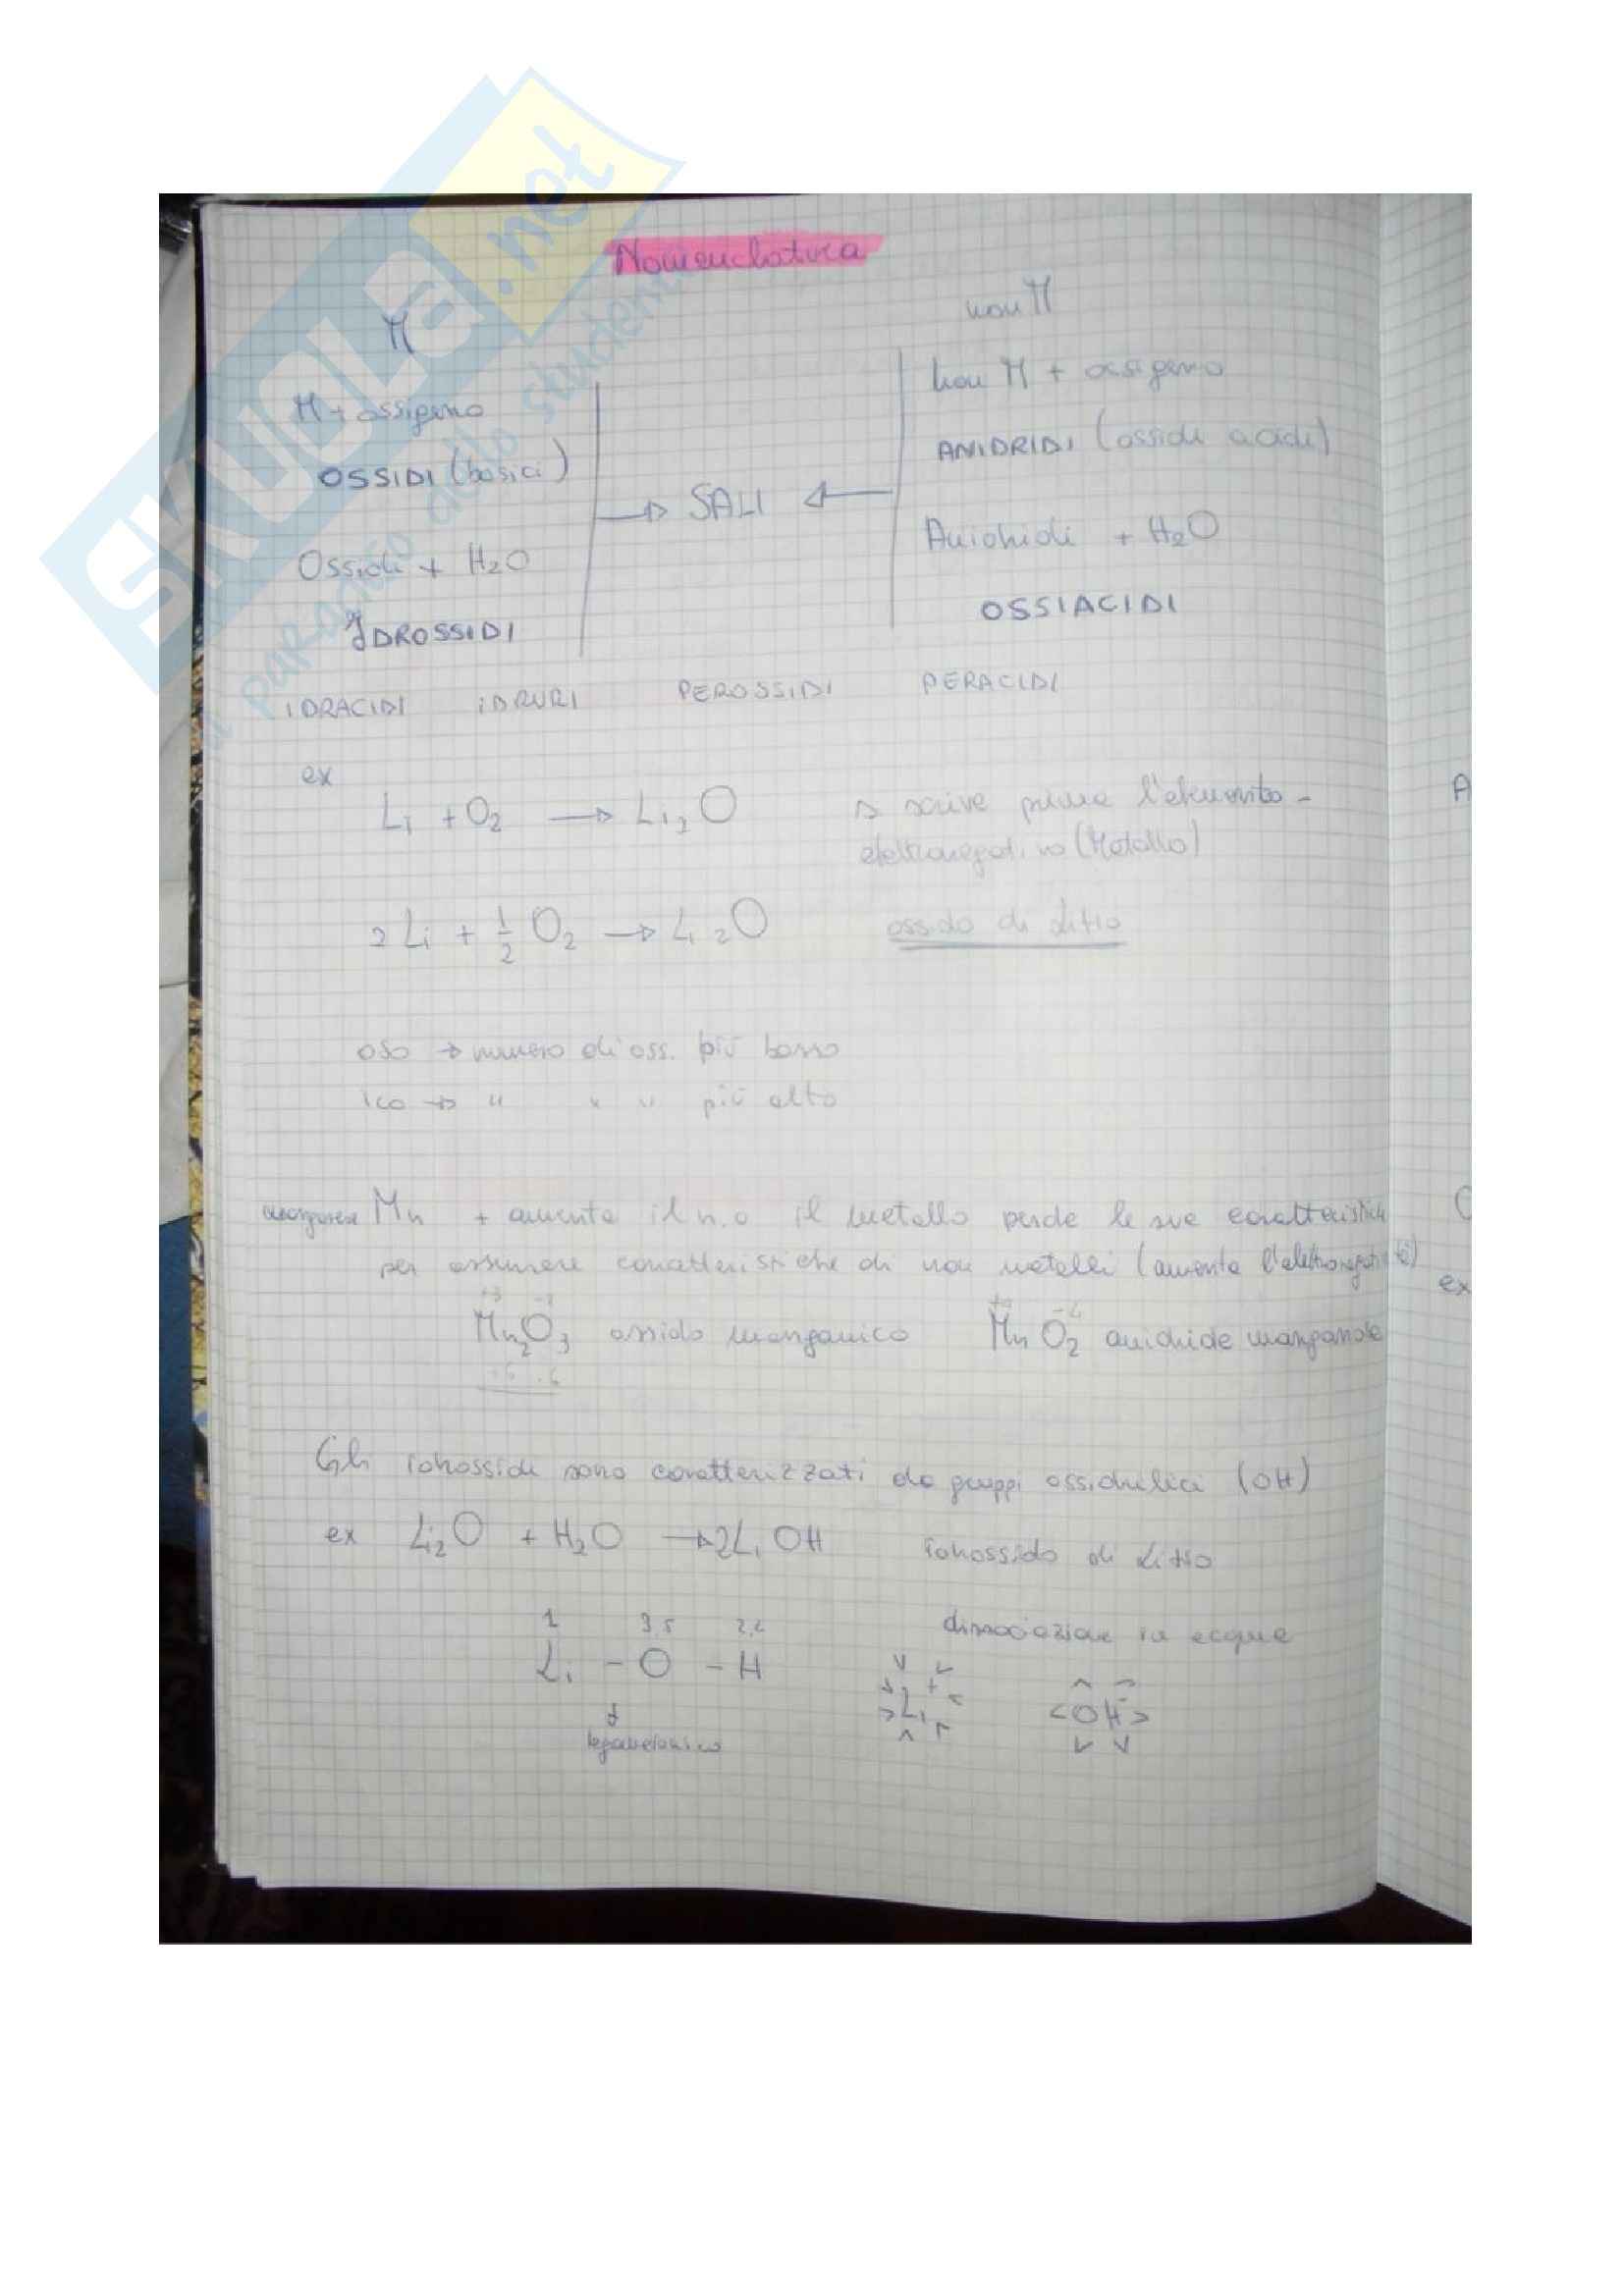 SKUOLA.net
il paradiso dello studente
Nomenclatura
M
non M
M + ossigeno
non M + ossigeno
OSSIDI (basici)
ANIDRIDI (ossidi acidi)
→ SALI ←
Ossidi + H₂O
Anidridi + H₂O
IDROSSIDI
OSSIACIDI
IDRACIDI iDRURI PEROSSIDI PERACIDI
ex
Li + O₂ → Li₂O si scrive prima l'elemento -
elettronegativo (Metallo)
2 Li + 1/2 O₂ → Li₂O ossido di Litio
oso → numero di oss. più basso
ico → " " " più alto
manganese Mn + aumenta il n.o il metallo perde le sue caratteristiche
per assumere caratteristiche di non metalli (aumenta l'elettronegatività)
+3
Mn₂O₃ ossido manganico MnO₂ anidride manganosa
Gli idrossidi sono caratterizzati da gruppi ossidrilici (OH)
ex Li₂O + H₂O → 2LiOH idrossido di Litio
1 3,5 2,2
dissociazione in acqua
Li - O - H
Li+
OH-
legame ionico
A
C
ex